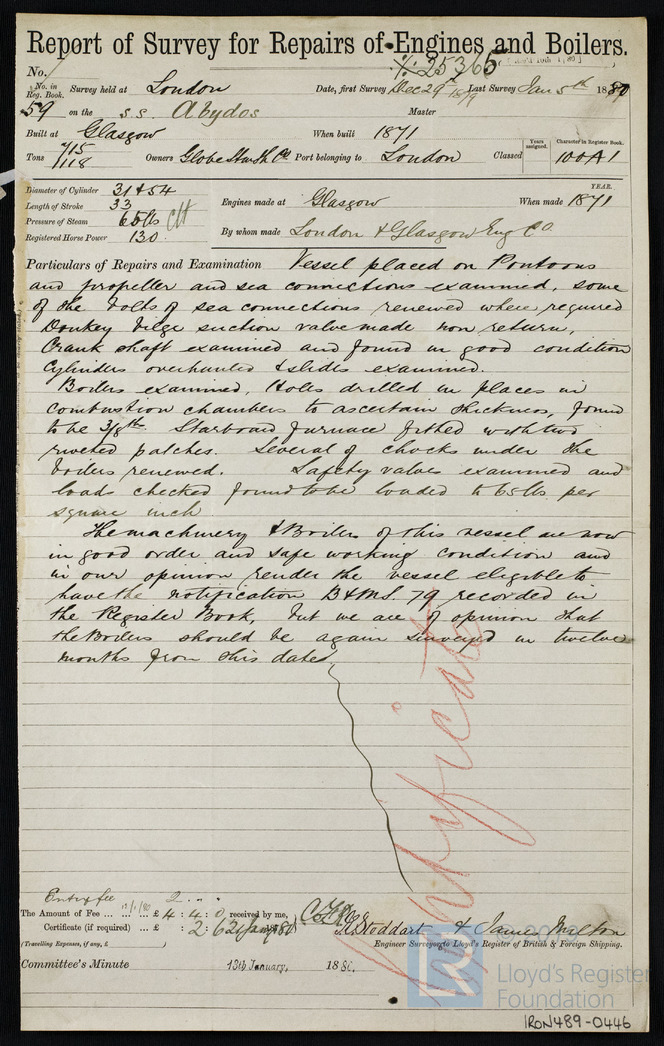 Report of Survey for Repairs of Engines and Boilers.
No. 25365
No. in Reg. Book. Survey held at London Date, first Survey Dec 29th 1879 Last Survey Jan 5th 1880
59 on the s.s. Abydos Master
Built at Glasgow When built 1871
Tons 715/1118 Owners Globe Steamship Co. Port belonging to London Classed Years assigned. Character in Register Book. 100A1
Diameter of Cylinder 31 & 54
Length of Stroke 33
Pressure of Steam 65 lbs
Registered Horse Power 130.
Engines made at Glasgow When made YEAR. 1871
By whom made London & Glasgow Eng Co.
Particulars of Repairs and Examination Vessel placed on Pontoons
and propeller and sea connections examined, some
of the bolts of sea connections renewed where required
Donkey bilge suction valve made non return,
Crank shaft examined and found in good condition
Cylinders overhauled & slides examined.
Boilers examined, Holes drilled in places in
combustion chambers to ascertain thickness, found
to be 3/8th. Starboard furnace fitted with two
riveted patches. Several of chocks under the
boilers renewed. Safety valves examined and
loads checked found to be loaded to 65 lbs per
square inch
The machinery & Boilers of this vessel are now
in good order and safe working condition and
in our opinion render the vessel eligible to
have the notification B&MS. 79 recorded in
the Register Book, but we are of opinion that
the Boilers should be again surveyed in twelve
months from this date.
Certificate
Entry fee 2
The Amount of Fee ... £ 4 : 4 : 0 received by me,
Certificate (if required) ... £ : 2 : 6
(Travelling Expenses, if any, £ )
Stoddart & James Milton
Engineer Surveyors to Lloyd's Register of British & Foreign Shipping.
Committee's Minute 13th January, 1880.
Lloyd's Register
Foundation
IRON489-0446